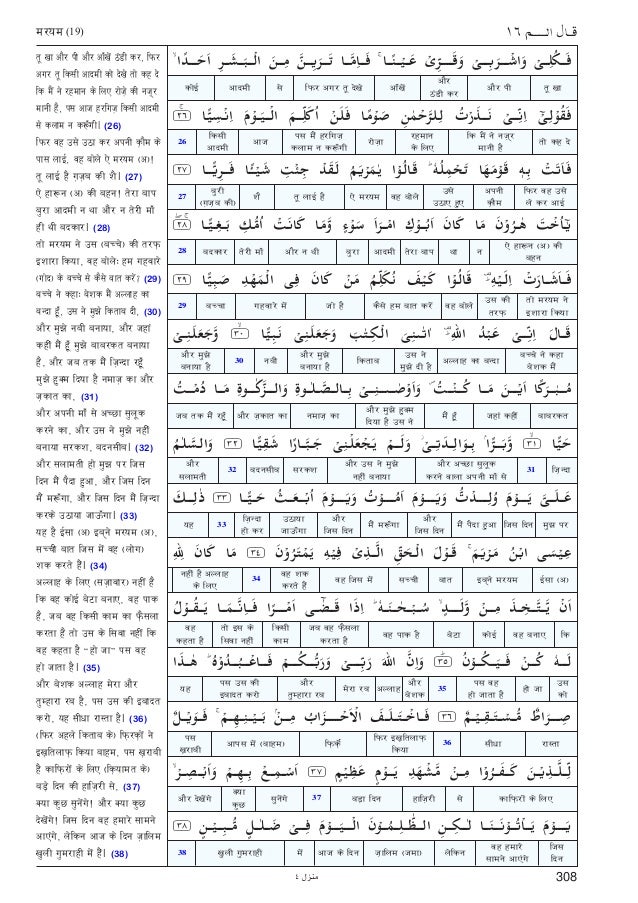 मरयम (19)
قال الم ١٦
तू खा और पी और आँखें ठंडी कर, फिर
अगर तू किसी आदमी को देखे तो कह दे
कि मैं ने रहमान के लिए रोज़े की नज़्र
मानी है, पस आज हरगिज़ किसी आदमी
से कलाम न करूँगी। (26)
फिर वह उसे उठा कर अपनी क़ौम के
पास लाई, वह बोले ऐ मरयम (अ)!
तू लाई है ग़ज़ब की शै। (27)
ऐ हारून (अ) की बहन! तेरा बाप
बुरा आदमी न था और न तेरी माँ
ही थी बदकार। (28)
तो मरयम ने उस (बच्चे) की तरफ़
इशारा किया, वह बोलेः हम गहवारे
(गोद) के बच्चे से कैसे बात करें? (29)
बच्चे ने कहाः बेशक मैं अल्लाह का
बन्दा हूँ, उस ने मुझे किताब दी, (30)
और मुझे नबी बनाया, और जहां
कहीं मैं हूँ मुझे बाबरकत बनाया
है, और जब तक मैं ज़िन्दा रहूँ
मुझे हुक्म दिया है नमाज़ का और
ज़कात का, (31)
और अपनी माँ से अच्छा सुलूक
करने का, और उस ने मुझे नहीं
बनाया सरकश, बदनसीब। (32)
और सलामती हो मुझ पर जिस
दिन मैं पैदा हुआ, और जिस दिन
मैं मरूँगा, और जिस दिन मैं ज़िन्दा
करके उठाया जाऊँगा। (33)
यह है ईसा (अ) इब्ने मरयम (अ),
सच्ची बात जिस में वह (लोग)
शक करते हैं। (34)
अल्लाह के लिए (सज़ावार) नहीं है
कि वह कोई बेटा बनाए, वह पाक
है, जब वह किसी काम का फ़ैसला
करता है तो उस के सिवा नहीं कि
वह कहता है "हो जा" पस वह
हो जाता है। (35)
और बेशक अल्लाह मेरा और
तुम्हारा रब है, पस उस की इबादत
करो, यह सीधा रास्ता है। (36)
(फिर अहले किताब के) फ़िरक़ों ने
इख़तिलाफ़ किया बाहम, पस ख़राबी
है काफ़िरों के लिए (क़ियामत के)
बड़े दिन की हाज़िरी से, (37)
क्या कुछ सुनेंगे! और क्या कुछ
देखेंगे! जिस दिन वह हमारे सामने
आएंगे, लेकिन आज के दिन ज़ालिम
खुली गुमराही में हैं। (38)
فَكُلِيْ وَاشْرَبِيْ وَقَرِّيْ عَيْنًا ۚ فَاِمَّا تَرَيِنَّ مِنَ الْبَشَرِ اَحَدًا ۙ
तू खा और पी और ठंडी कर आँखें फिर अगर तू देखे से आदमी कोई
فَقُوْلِيْٓ اِنِّيْ نَذَرْتُ لِلرَّحْمٰنِ صَوْمًا فَلَنْ اُكَلِّمَ الْيَوْمَ اِنْسِيًّا ۚ ٢٦
तो कह दे कि मैं ने नज़्र मानी है रहमान के लिए रोज़ा पस मैं हरगिज़ कलाम न करूँगी आज किसी आदमी 26
فَاَتَتْ بِهٖ قَوْمَهَا تَحْمِلُهٗ ۭ قَالُوْا يٰمَرْيَمُ لَقَدْ جِئْتِ شَيْئًا فَرِيًّا ٢٧
फिर वह उसे ले कर आई अपनी क़ौम उसे उठाए हुए वह बोले ऐ मरयम तू लाई है शै बुरी (ग़ज़ब की) 27
يٰٓاُخْتَ هٰرُوْنَ مَا كَانَ اَبُوْكِ امْرَاَ سَوْءٍ وَّمَا كَانَتْ اُمُّكِ بَغِيًّا ٢٨
ऐ हारून (अ) की बहन न था तेरा बाप आदमी बुरा और न थी तेरी माँ बदकार 28
فَاَشَارَتْ اِلَيْهِ ۭ قَالُوْا كَيْفَ نُكَلِّمُ مَنْ كَانَ فِي الْمَهْدِ صَبِيًّا ٢٩
तो मरयम ने इशारा किया उस की तरफ़ वह बोले कैसे हम बात करें जो है गहवारे में बच्चा 29
قَالَ اِنِّيْ عَبْدُ اللّٰهِ ۭ اٰتٰىنِيَ الْكِتٰبَ وَجَعَلَنِيْ نَبِيًّا ٣٠ وَّجَعَلَنِيْ
बच्चे ने कहा बेशक मैं अल्लाह का बन्दा उस ने मुझे दी है किताब और मुझे बनाया है नबी 30 और मुझे बनाया है
مُبٰرَكًا اَيْنَ مَا كُنْتُ ۠ وَاَوْصٰىنِيْ بِالصَّلٰوةِ وَالزَّكٰوةِ مَا دُمْتُ
बाबरकत जहां कहीं मैं हूँ और मुझे हुक्म दिया है उस ने नमाज़ का और ज़कात का जब तक मैं रहूँ
حَيًّا ٣١ وَّبَرًّۢا بِوَالِدَتِيْ ۡ وَلَمْ يَجْعَلْنِيْ جَبَّارًا شَقِيًّا ٣٢ وَالسَّلٰمُ
ज़िन्दा 31 और अच्छा सुलूक करने वाला अपनी माँ से और उस ने मुझे नहीं बनाया सरकश बदनसीब 32 और सलामती
عَلَيَّ يَوْمَ وُلِدْتُّ وَيَوْمَ اَمُوْتُ وَيَوْمَ اُبْعَثُ حَيًّا ٣٣ ذٰلِكَ
मुझ पर जिस दिन मैं पैदा हुआ और जिस दिन मैं मरूँगा और जिस दिन उठाया जाऊँगा ज़िन्दा हो कर 33 यह
عِيْسَى ابْنُ مَرْيَمَ ۚ قَوْلَ الْحَقِّ الَّذِيْ فِيْهِ يَمْتَرُوْنَ ٣٤ مَا كَانَ لِلّٰهِ
ईसा (अ) इब्ने मरयम बात सच्ची वह जिस में वह शक करते हैं 34 नहीं है अल्लाह के लिए
اَنْ يَّتَّخِذَ مِنْ وَّلَدٍ ۙ سُبْحٰنَهٗ ۭ اِذَا قَضٰٓى اَمْرًا فَاِنَّمَا يَقُوْلُ
कि वह बनाए कोई बेटा वह पाक है जब वह फ़ैसला करता है किसी काम तो इस के सिवा नहीं वह कहता है
لَهٗ كُنْ فَيَكُوْنُ ٣٥ وَاِنَّ اللّٰهَ رَبِّيْ وَرَبُّكُمْ فَاعْبُدُوْهُ ۭ هٰذَا
उस को हो जा पस वह हो जाता है 35 और बेशक अल्लाह मेरा रब और तुम्हारा रब पस उस की इबादत करो यह
صِرَاطٌ مُّسْتَقِيْمٌ ٣٦ فَاخْتَلَفَ الْاَحْزَابُ مِنْۢ بَيْنِهِمْ ۚ فَوَيْلٌ
रास्ता सीधा 36 फिर इख़तिलाफ़ किया फ़िर्क़े आपस में (बाहम) पस ख़राबी
لِّلَّذِيْنَ كَفَرُوْا مِنْ مَّشْهَدِ يَوْمٍ عَظِيْمٍ ٣٧ اَسْمِعْ بِهِمْ وَاَبْصِرْ ۙ
काफ़िरों के लिए से हाज़िरी बड़ा दिन 37 सुनेंगे क्या कुछ और देखेंगे
يَوْمَ يَاْتُوْنَنَا لٰكِنِ الظّٰلِمُوْنَ الْيَوْمَ فِيْ ضَلٰلٍ مُّبِيْنٍ ٣٨
जिस दिन वह हमारे सामने आएंगे लेकिन ज़ालिम (जमा) आज के दिन में खुली गुमराही 38
منزل ٤
308